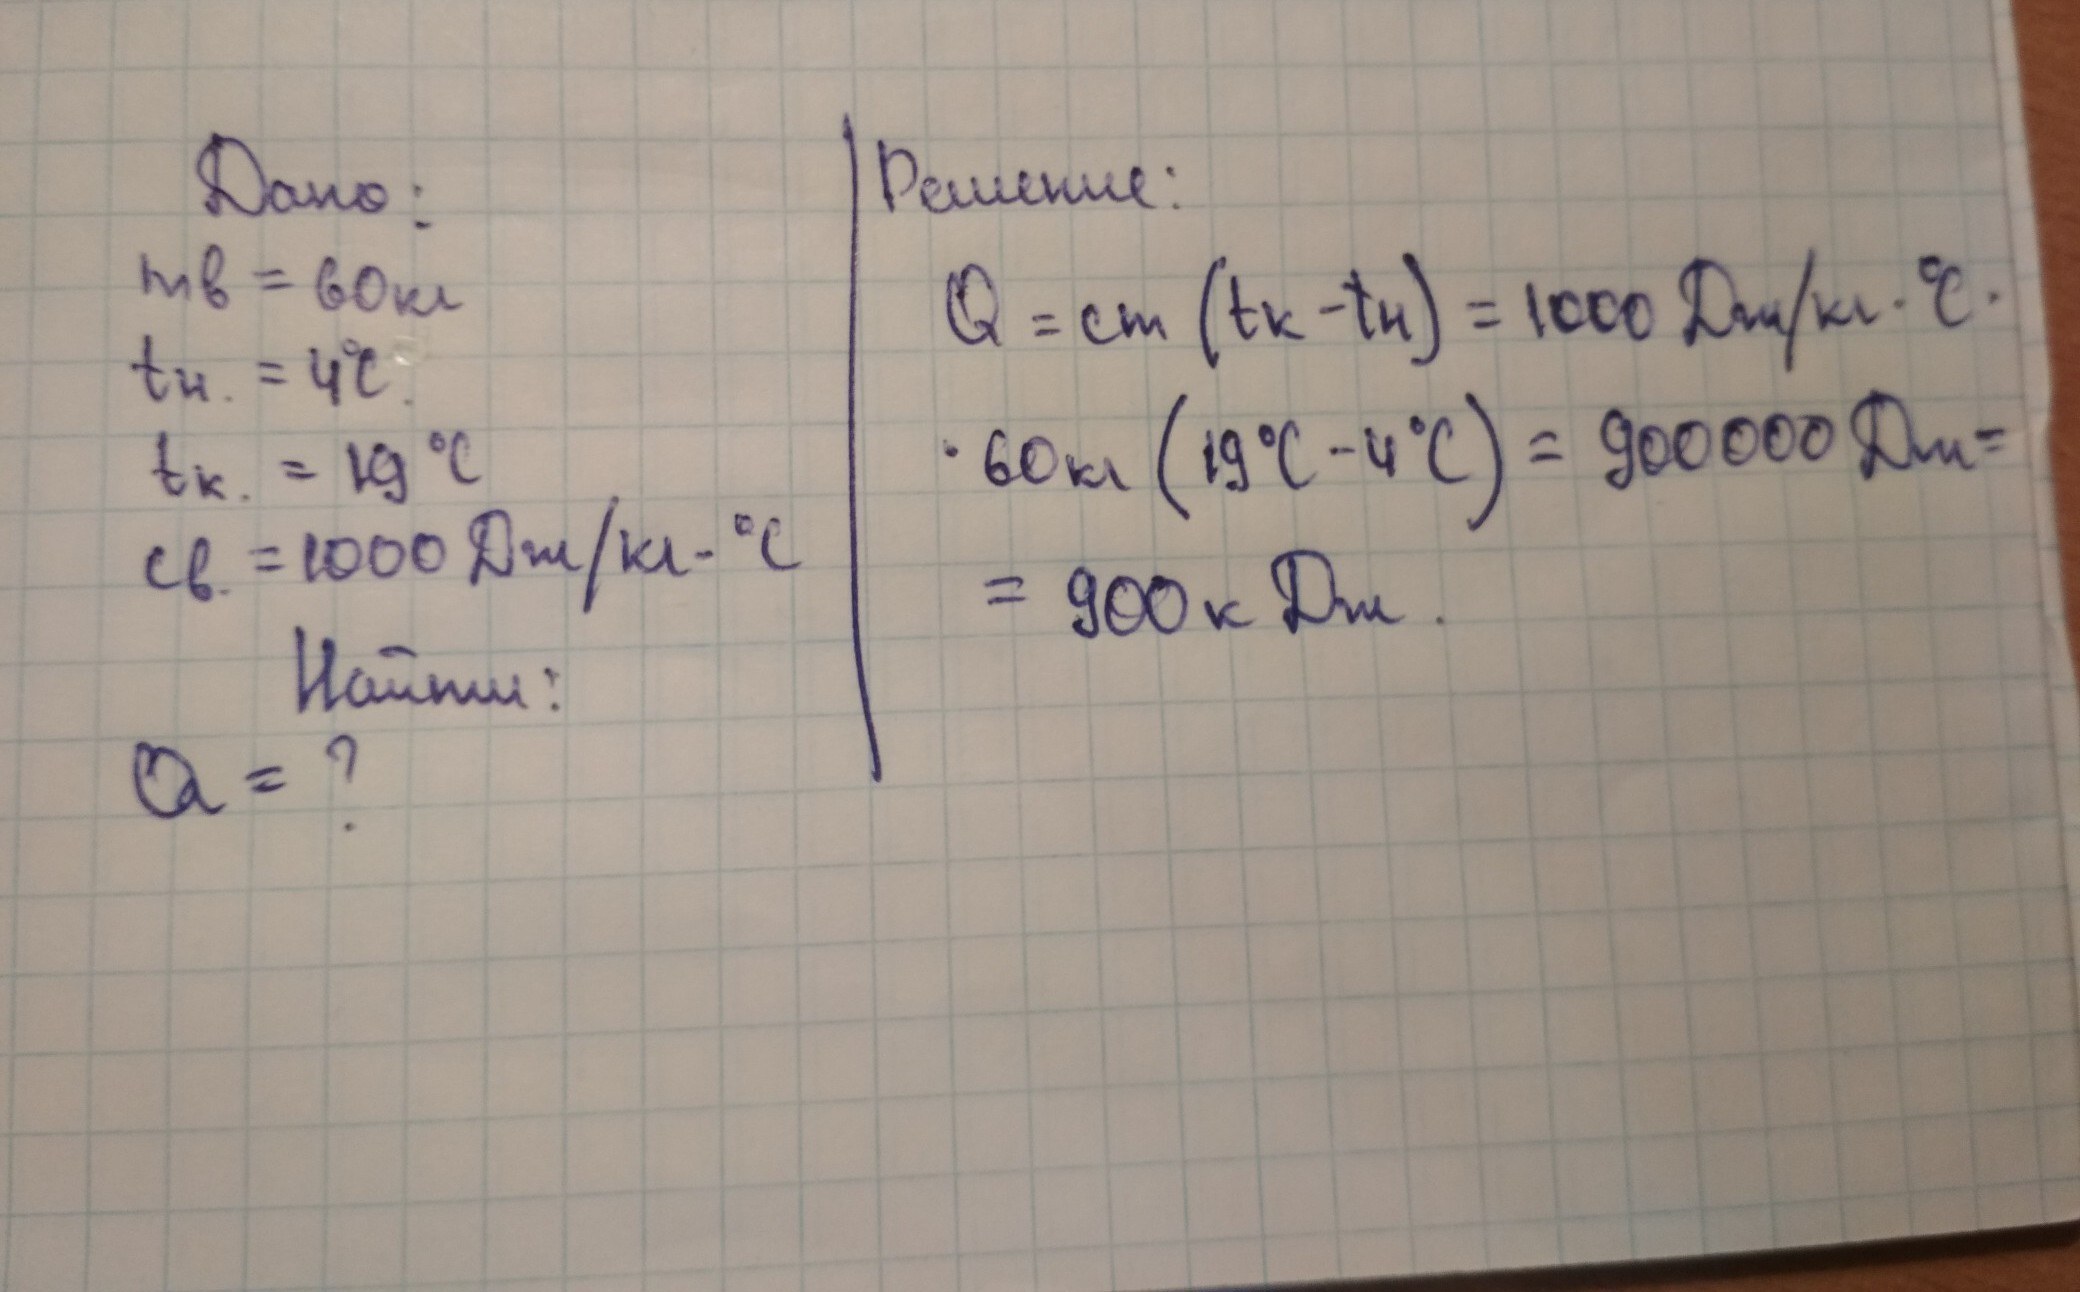 Дано:
mв = 60кг
tн. = 4°C.
tк. = 19°C
cв. = 1000 Дж/кг·°C
Найти:
Q = ?
Решение:
Q = cm (tк - tн) = 1000 Дж/кг·°C·
·60кг (19°C - 4°C) = 900000 Дж =
= 900к Дж.